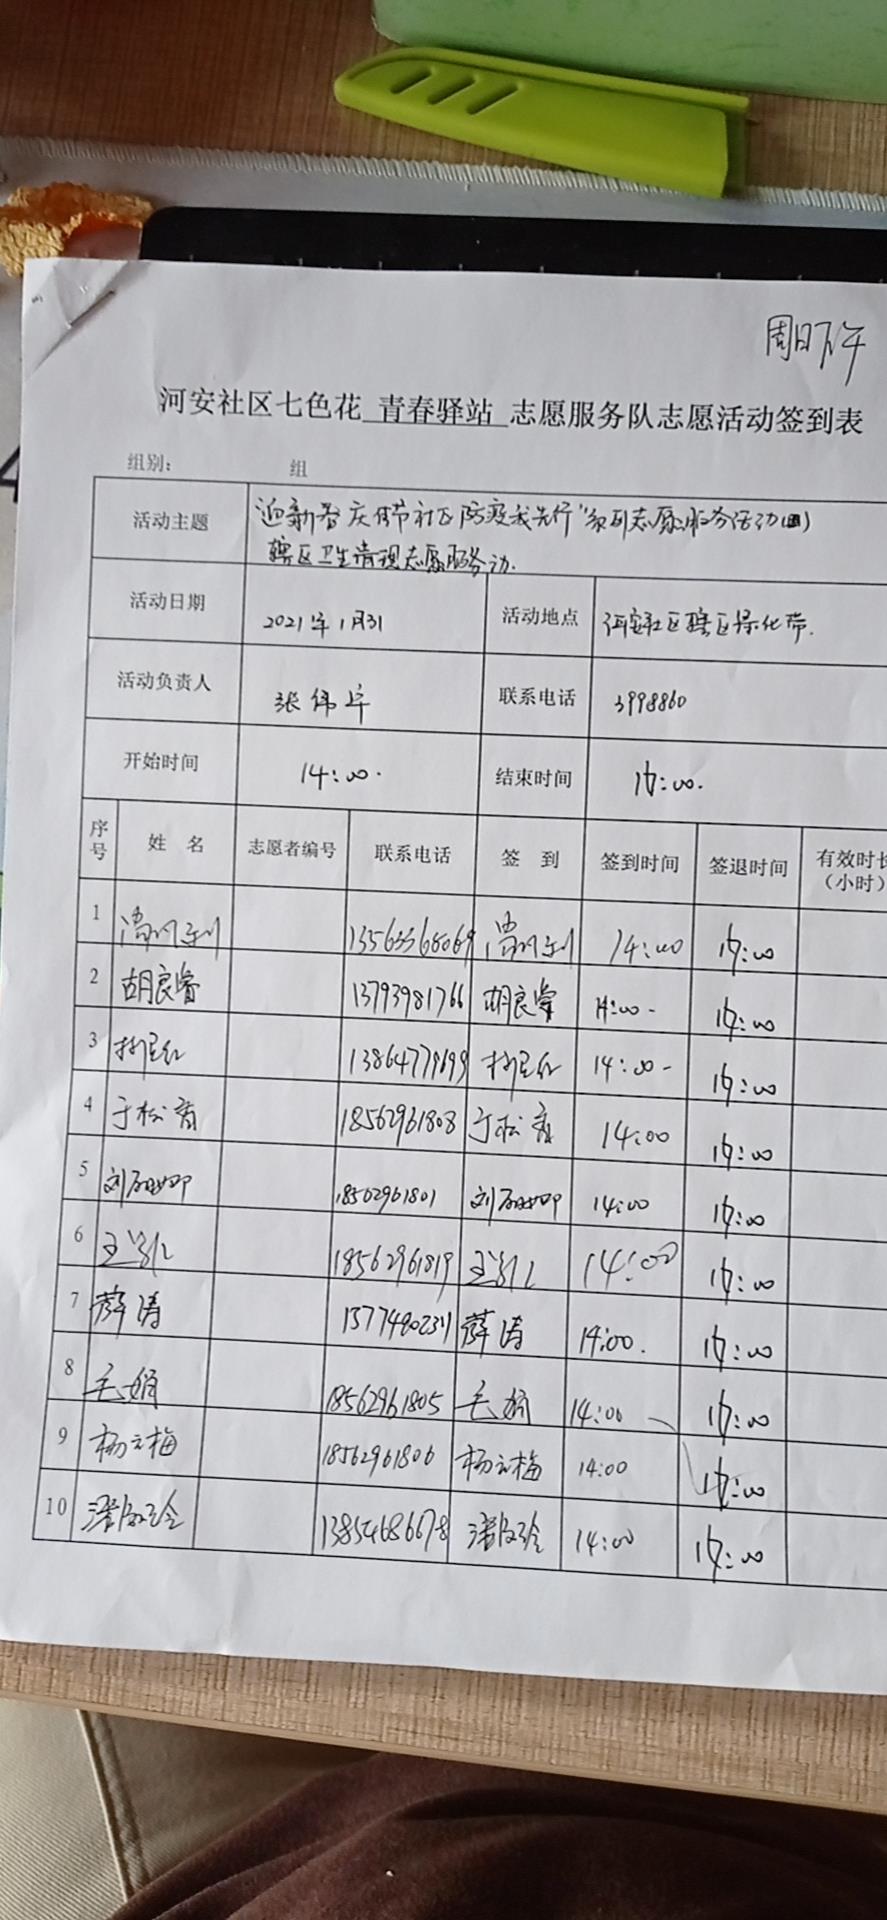 周日下午
河安社区七色花 青春驿站 志愿服务队志愿活动签到表
组别: 组
活动主题 迎新春庆佳节社区防疫我先行"系列志愿服务活动(四)
辖区卫生清理志愿服务活动.
活动日期 2021年1月31 活动地点 河安社区辖区绿化带.
活动负责人 张伟 联系电话 3998860
开始时间 14:00. 结束时间 16:00.
序号 姓名 志愿者编号 联系电话 签到 签到时间 签退时间 有效时长(小时)
1 14:00 16:00
2 胡良睿 13793981766 胡良睿 14:00- 16:00
3 13864779699 14:00- 16:00
4 于松育 18562961808 于松育 14:00 16:00
5 18562961801 14:00 16:00
6 18562961819 14:00 16:00
7 薛涛 薛涛 14:00. 16:00
8 毛娟 18562961805 毛娟 14:00 16:00
9 杨云梅 18562961806 杨云梅 14:00 16:00
10 13854686678 14:00 16:00